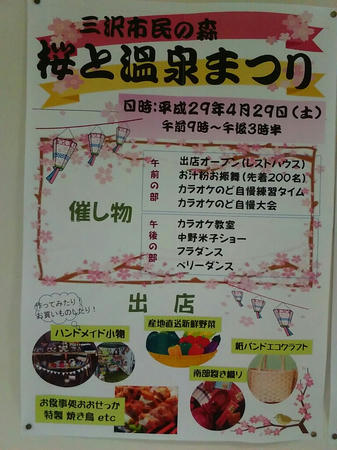 三沢市民の森
桜と温泉まつり
日時:平成29年4月29日(土)
午前9時～午後3時半
催し物
午前の部
出店オープン(レストハウス)
お汁粉お振舞(先着200名)
カラオケのど自慢練習タイム
カラオケのど自慢大会
午後の部
カラオケ教室
中野米子ショー
フラダンス
ベリーダンス
作ってみたり!
お買いものしたり!
出店
ハンドメイド小物
産地直送新鮮野菜
紙バンドエコクラフト
南部裂き織り
お食事処おおせっか
特製 焼き鳥 etc